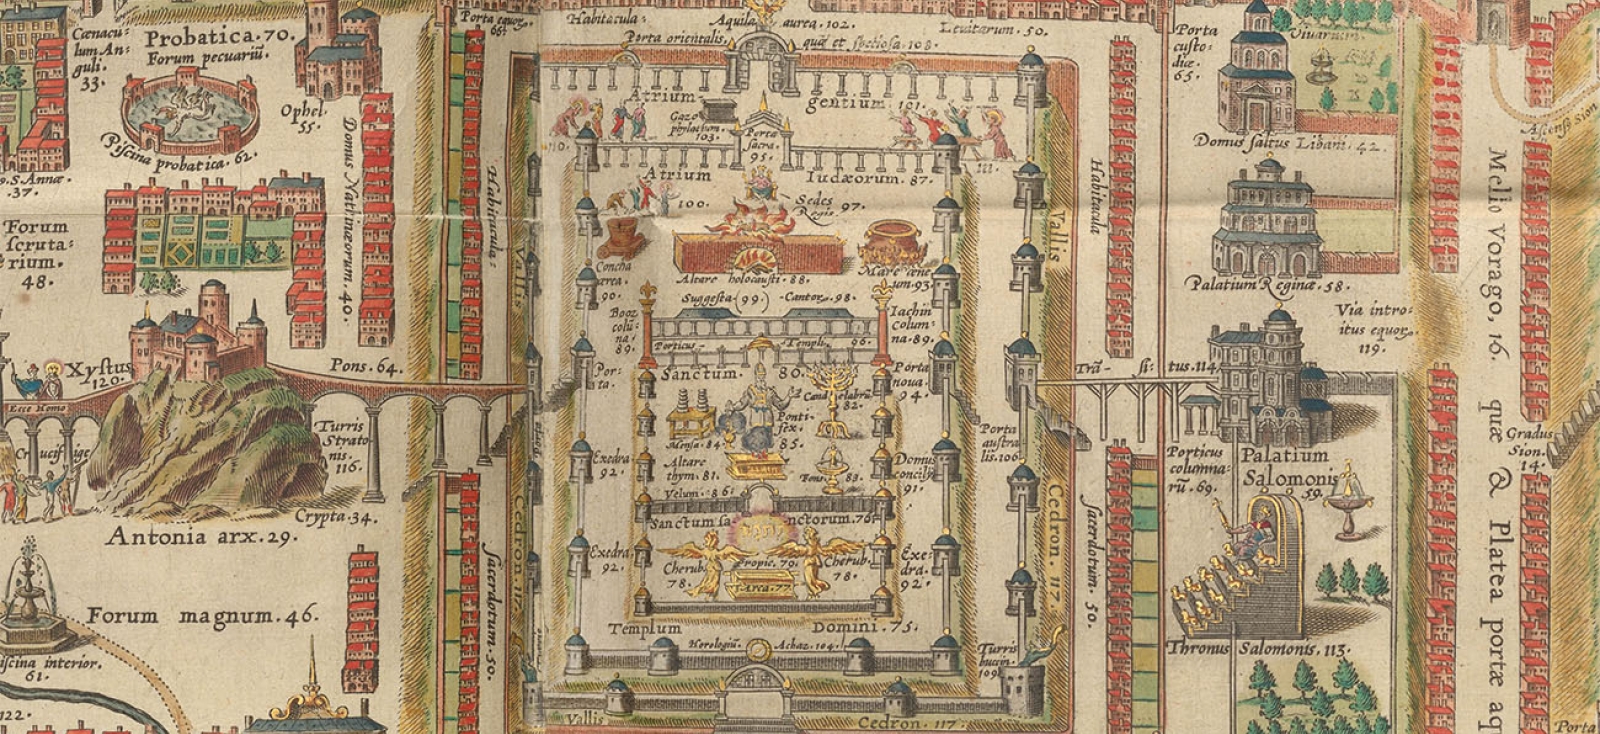 Cœnacu:
lum An:
guli.
33.
Probatica. 70.
Forum pecuariũ.
Ophel.
55.
Piscina probatica. 62.
S. Annæ.
37.
Forum
scruta:
rium.
48.
Domus Natinæorum. 40.
Xystus
120.
Pons. 64.
Ecce Homo
Crucifige
Turris
Strato:
nis.
116.
Crypta. 34.
Antonia arx. 29.
Forum magnum. 46.
Piscina interior.
61.
122.
Porta equor.
66.
Habitacula:
Sacerdotum. 50.
Vallis
Cedron. 117.
Habitacula:
Aquila aurea. 102.
Levitarum. 50.
Porta orientalis,
quæ et speciosa. 108.
Atrium
gentium. 101.
Gazo
phylacium.
103.
Porta
sacra.
95.
110.
111.
Atrium
Iudæorum. 87.
100.
Sedes
Regis.
97.
Concha
ærea.
90.
Altare holocausti. 88.
Mare æne
um. 93.
Suggesta (99.) Cantor. 98.
Booz
colũ:
na.
89.
Iachin
Colum:
na. 89.
Porticus
Templi.
96.
Por:
ta.
Sanctum. 80.
Candelabrũ.
82.
Porta
noua.
94.
Mensa. 84.
Ponti:
fex.
85.
Exedra
92.
Altare
thym. 81.
Fons. 83.
Domus
concilij
91.
Porta
austra:
lis. 106.
Velum. 86.
Sanctum sanctorum. 76.
Exedra
92.
Cherub.
78.
Propic. 79.
Cherub.
78.
Exe:
dra.
92.
Arca. 77.
Templum
Domini. 75.
Horologiũ.
Achaz. 104.
Turris
buccin.
109.
Vallis
Cedron. 117.
Vallis
Cedron. 117.
Habitacula
sacerdotum. 50.
Trã-
si:
tus. 114.
Porta
custo:
diæ.
65.
Vivarium.
Domus saltus Libani. 42.
Palatium Reginæ. 58.
Via intro:
itus equor.
119.
Porticus
columna:
rũ. 69.
Palatium
Salomonis
59.
Thronus Salomonis. 113.
Mello Vorago, 16. quæ & Platea portæ aq
Ascensꝰ Sion
Gradus
Sion.
14.
Porta